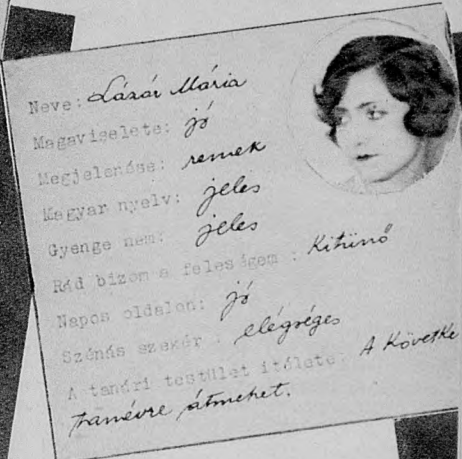 Neve: Lázár Mária
Magaviselete: jó
Megjelenése: remek
Magyar nyelv: jeles
Gyenge nem: jeles
Rád bizom a feleségem : Kitünő
Napos oldalon: jó
Szénás szekér : elégséges
A tanári testület itélete: A Követke
tanévre átmehet.